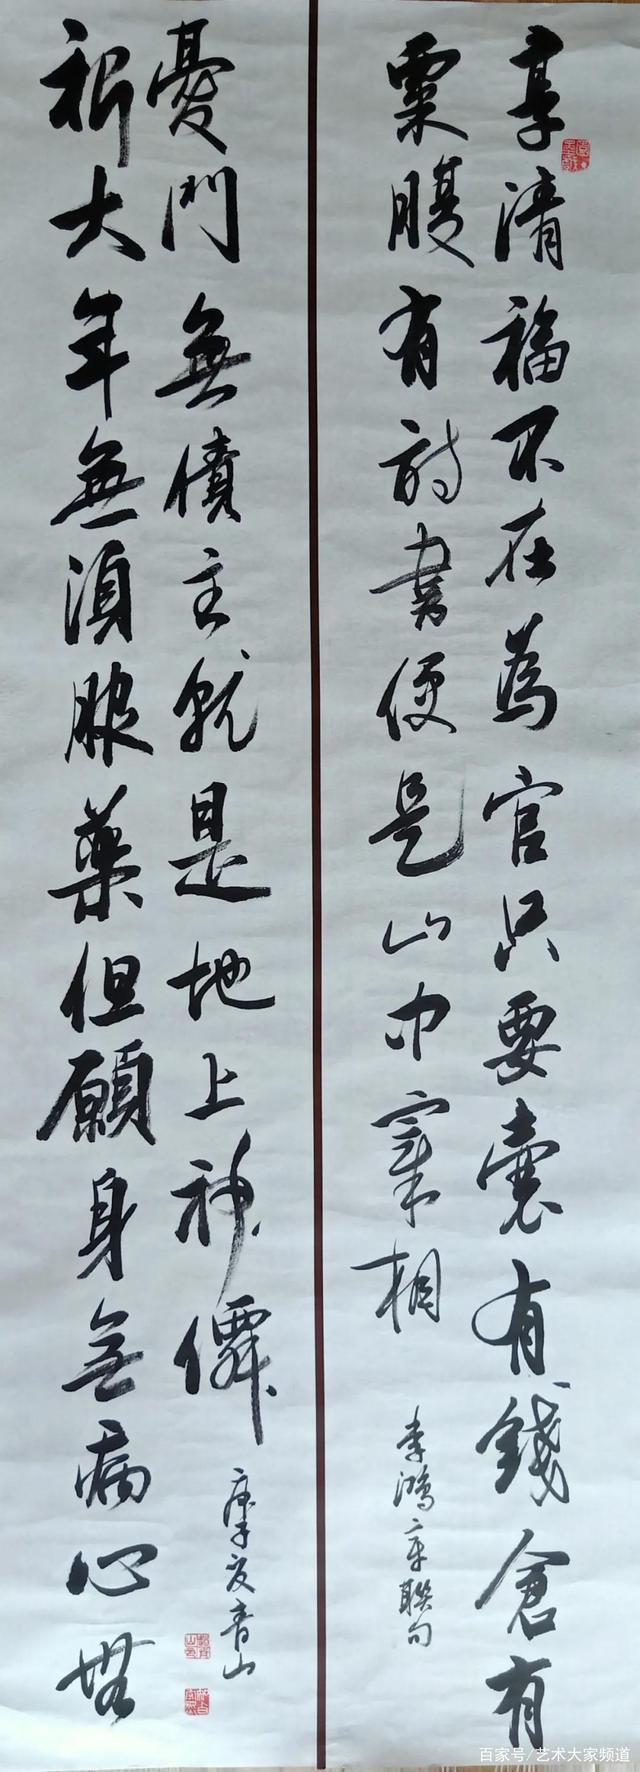 享清福不在為官只要囊有錢倉有
粟腹有詩書便是山中宰相
李鴻章聯句
祈大年無須服藥但願身無病心無
憂門無債主就是地上神僊
青山
百家号/艺术大家频道